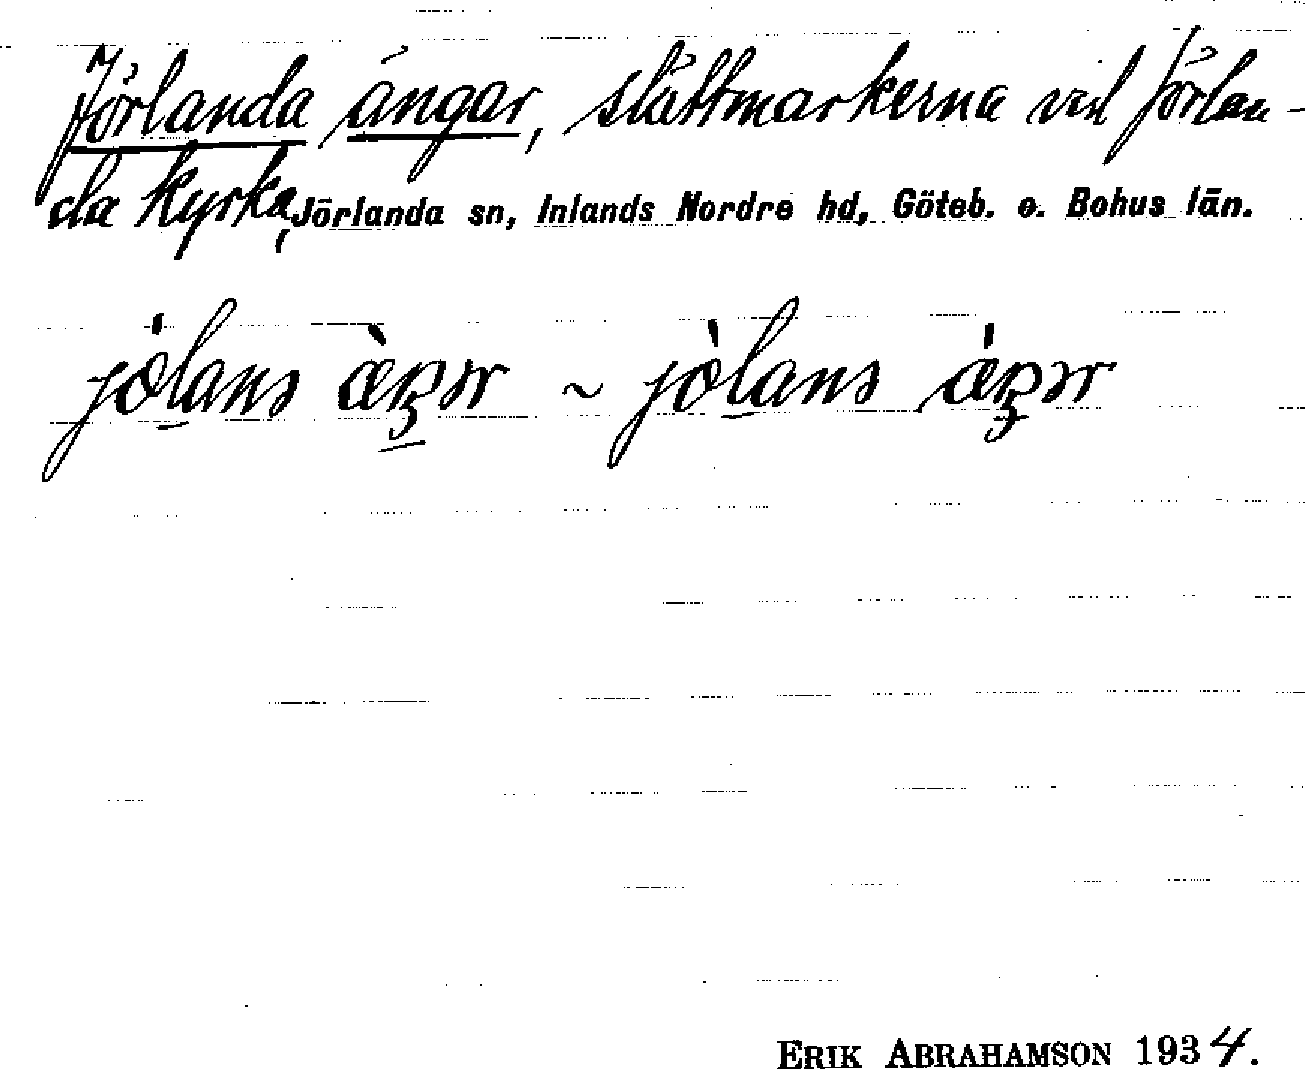 Jörlanda ängar, slåttmarkerna vid Jörlan-
da kyrka, Jörlanda sn, Inlands Nordre hd, Göteb. o. Bohus län.
jòlans ~ jòlans
ERIK ABRAHAMSON 1934.